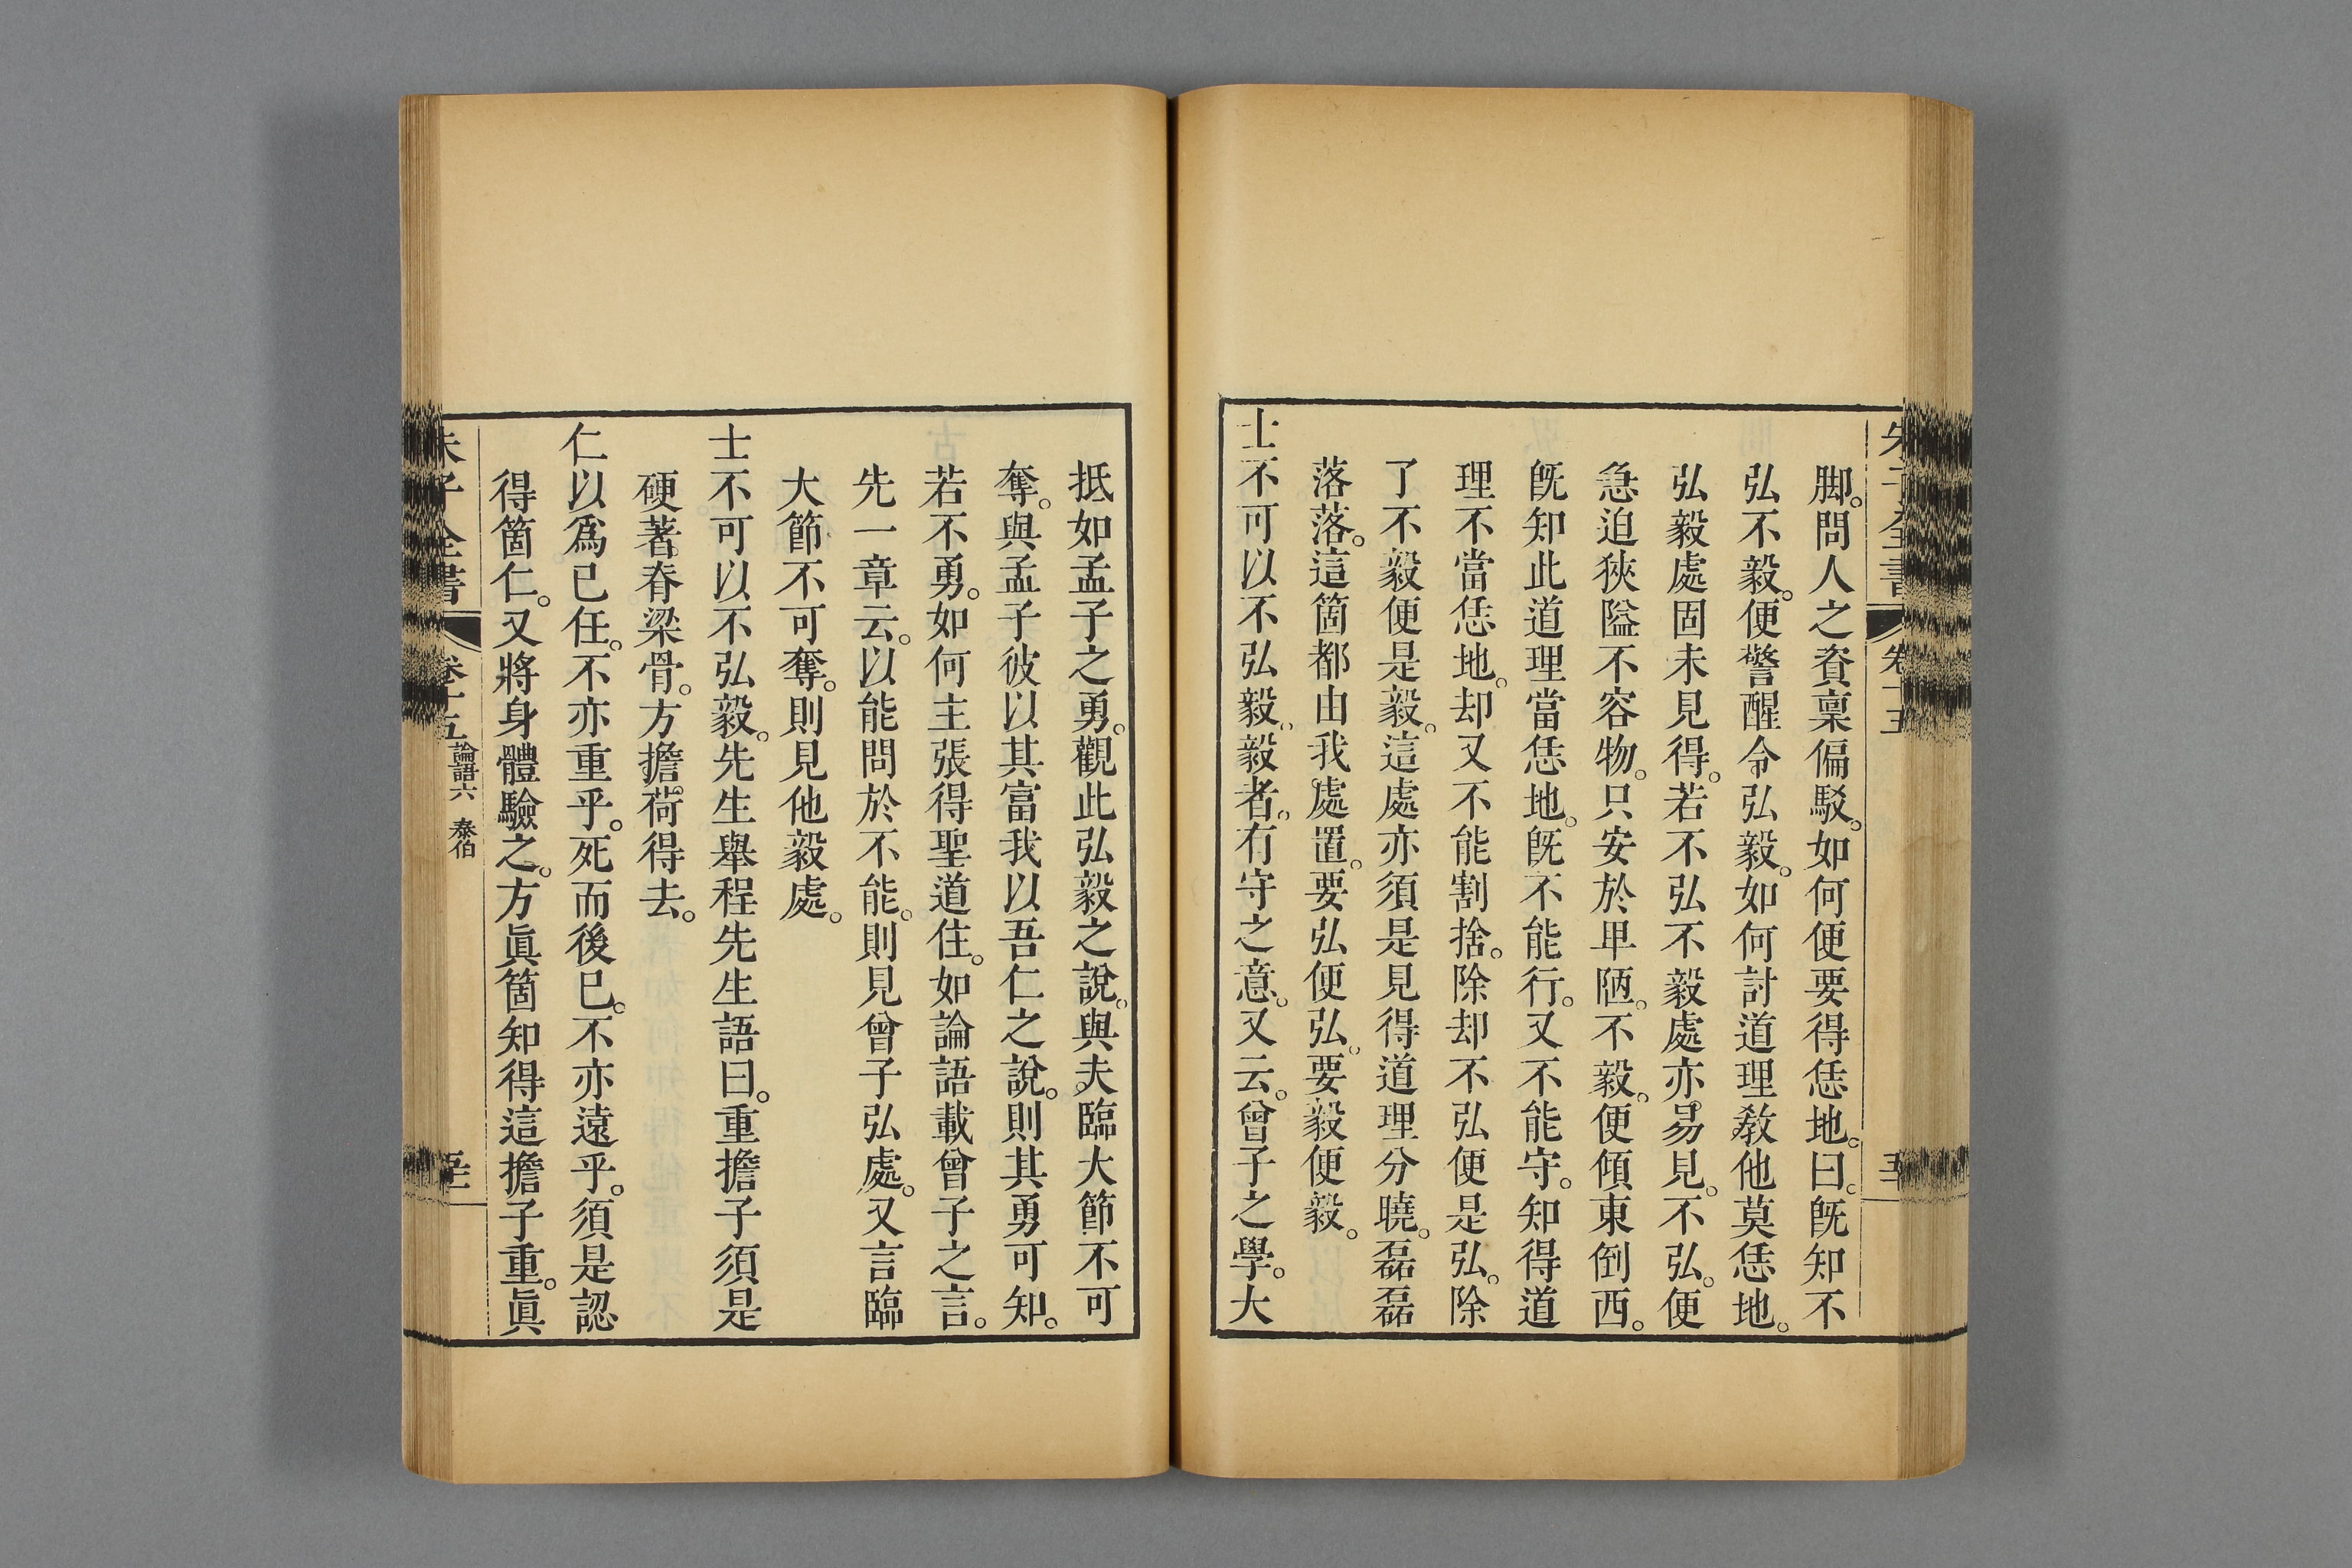 脚。問人之資稟偏駁。如何便要得恁地。曰。旣知不
弘不毅。便警醒令弘毅。如何討道理敎他莫恁地。
弘毅處固未見得。若不弘不毅處亦易見。不弘。便
急迫狹隘不容物。只安於卑陋。不毅。便傾東倒西。
旣知此道理當恁地。旣不能行。又不能守。知得道
理不當恁地。却又不能割捨。除却不弘便是弘。除
了不毅便是毅。這處亦須是見得道理分曉。磊磊
落落。這箇都由我處置。要弘便弘。要毅便毅。
士不可以不弘毅。毅者。有守之意。又云。曾子之學。大
抵如孟子之勇。觀此弘毅之說。與夫臨大節不可
奪。與孟子彼以其富我以吾仁之說。則其勇可知。
若不勇。如何主張得聖道住。如論語載曾子之言。
先一章云。以能問於不能。則見曾子弘處。又言臨
大節不可奪。則見他毅處。
士不可以不弘毅。先生舉程先生語曰。重擔子須是
硬著脊梁骨。方擔荷得去。
仁以爲已任。不亦重乎。死而後已。不亦遠乎。須是認
得箇仁。又將身體驗之。方眞箇知得這擔子重。眞
朱子全書
卷十五
論語六 泰伯